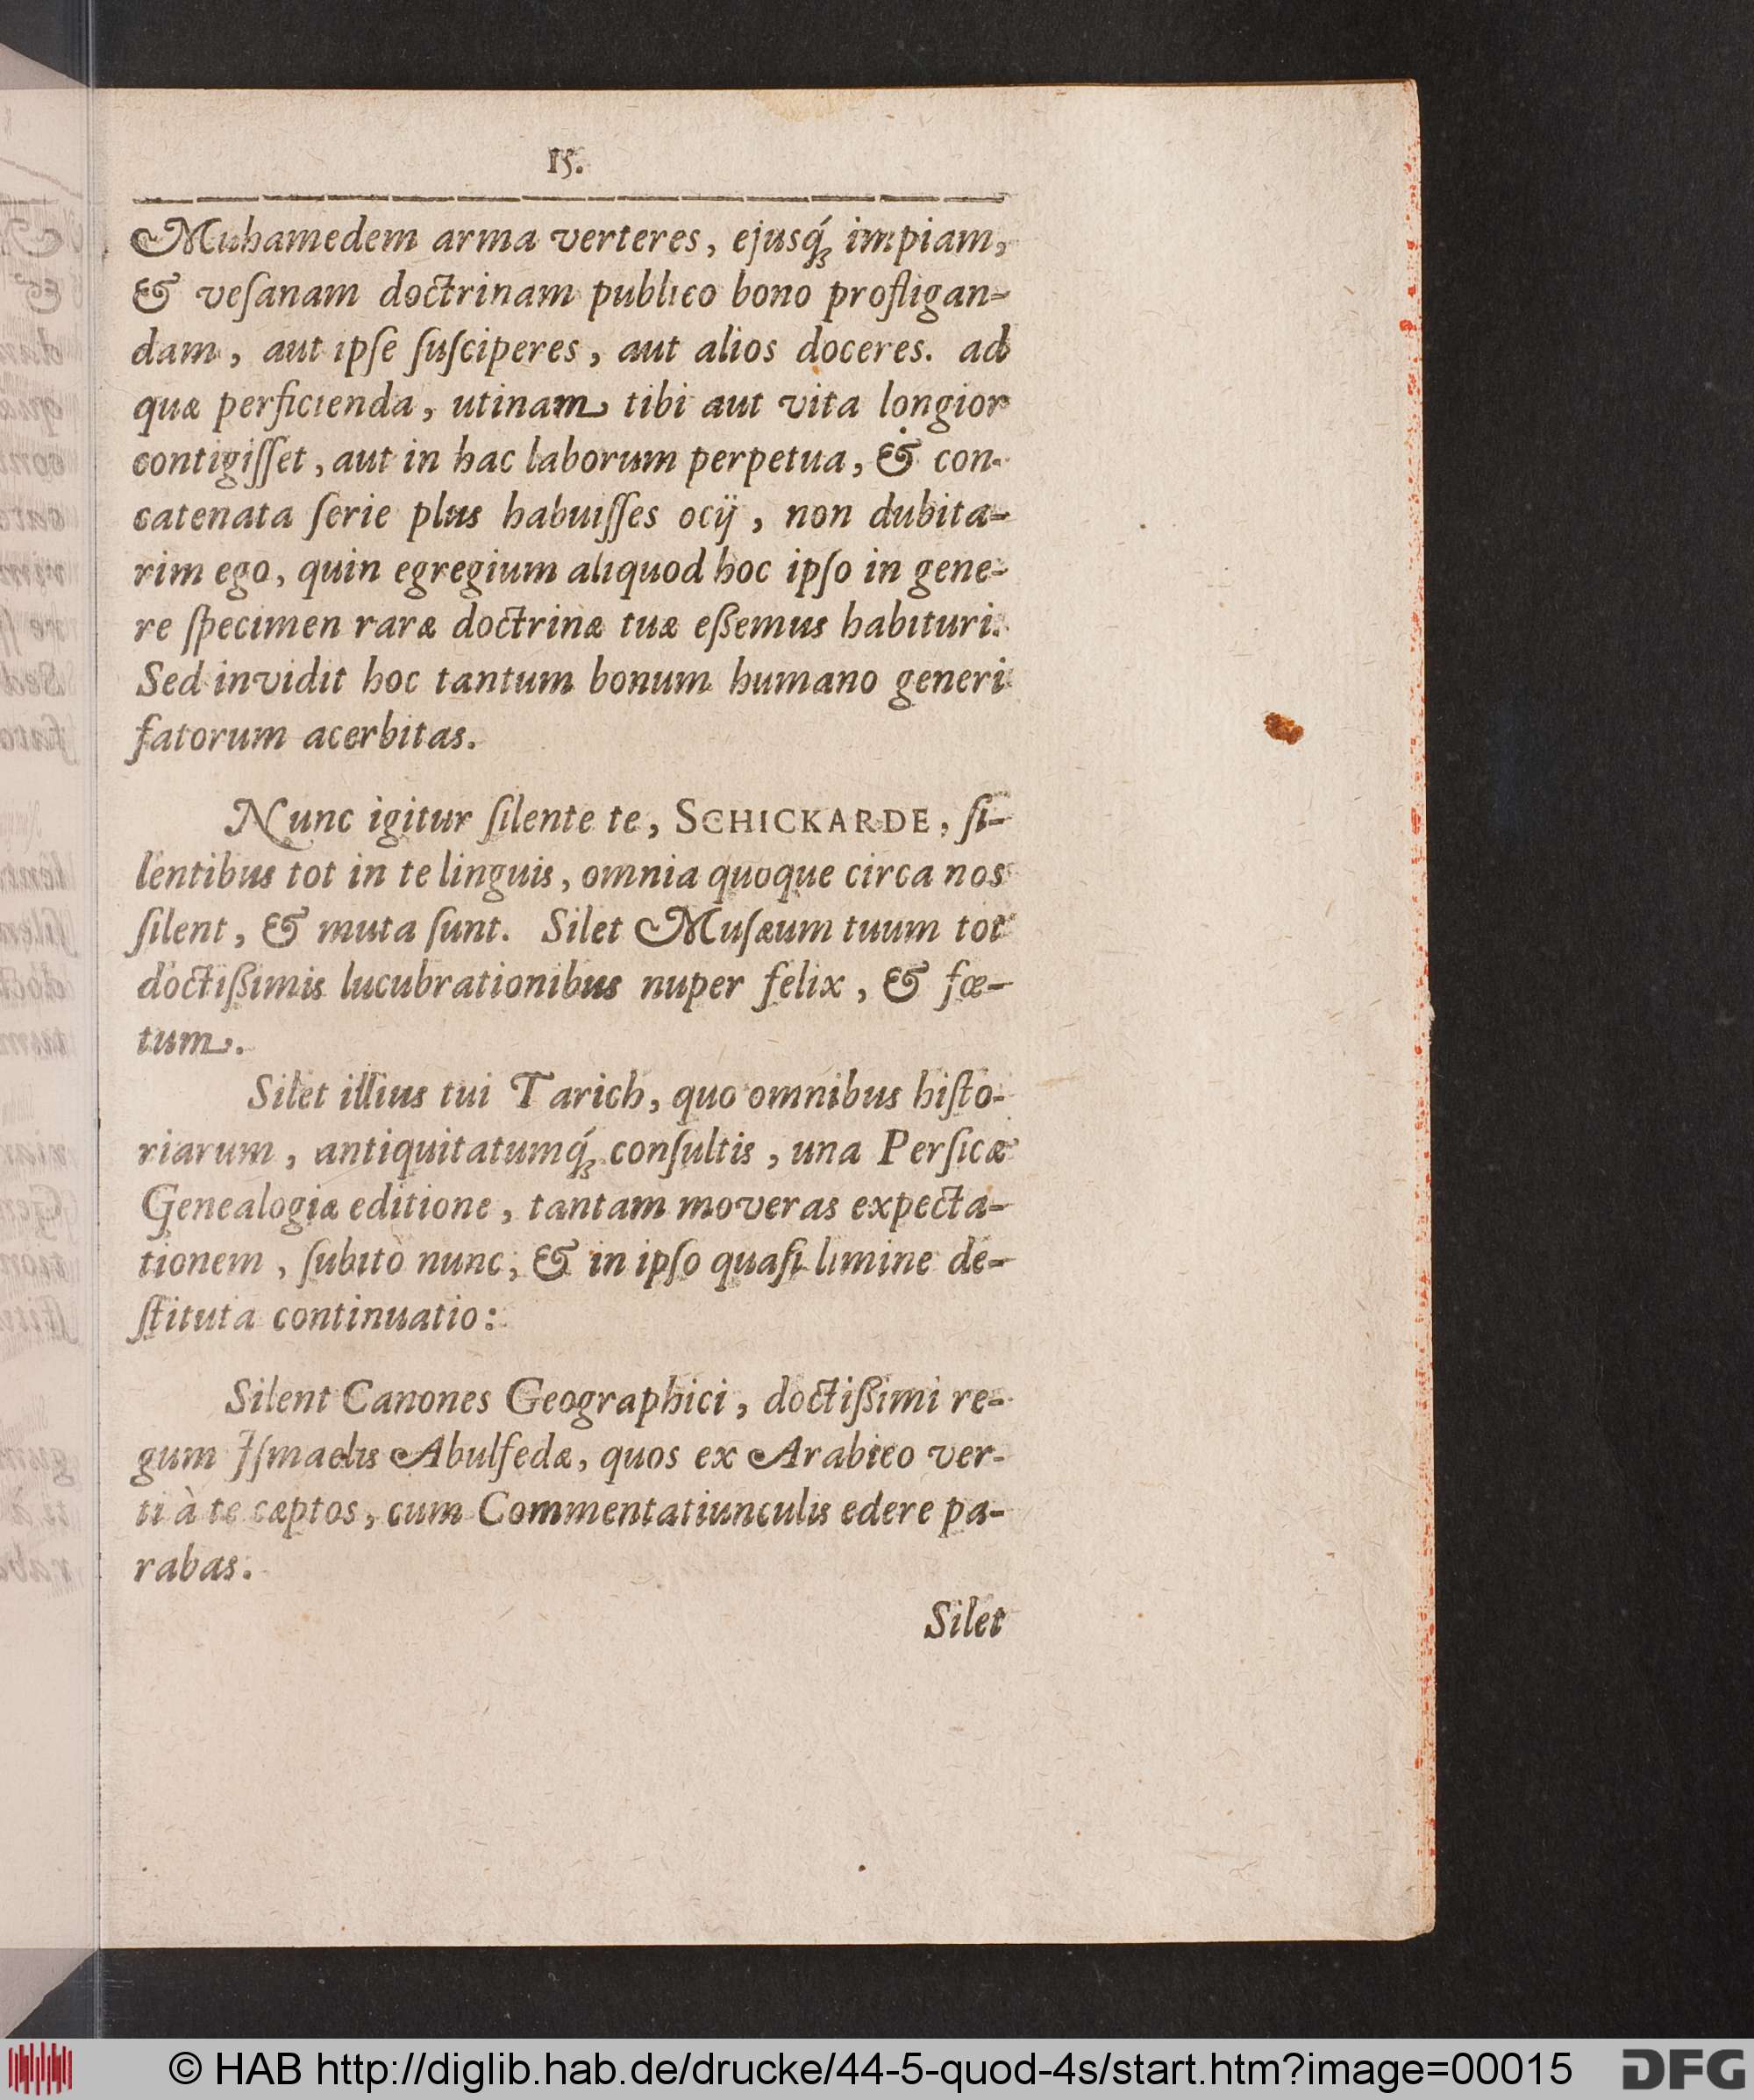 15.
Muhamedem arma verteres, ejusq́ꝫ impiam,
& veſanam doctrinam publico bono profligan-
dam, aut ipſe ſuſciperes, aut alios doceres. ad
quæ perficienda, utinam tibi aut vita longior
contigiſſet, aut in hac laborum perpetua, & con-
catenata ſerie plus habuiſſes ocij, non dubita-
rim ego, quin egregium aliquod hoc ipſo in gene-
re ſpecimen raræ doctrinæ tuæ eßemus habituri.
Sed invidit hoc tantum bonum humano generi
fatorum acerbitas.
Nunc igitur ſilente te, SCHICKARDE, ſi-
lentibus tot in te linguis, omnia quoque circa nos
ſilent, & muta ſunt. Silet Muſæum tuum tot
doctißimis lucubrationibus nuper felix, & fœ-
tum.
Silet illius tui Tarich, quo omnibus hiſto-
riarum, antiquitatumq́ꝫ conſultis, una Perſicæ
Genealogiæ editione, tantam moveras expecta-
tionem, ſubitò nunc, & in ipſo quaſi limine de-
ſtituta continuatio:
Silent Canones Geographici, doctißimi re-
gum Iſmaelis Abulfedæ, quos ex Arabico ver-
ti à te cæptos, cum Commentatiunculis edere pa-
rabas.
Silet
© HAB http://diglib.hab.de/drucke/44-5-quod-4s/start.htm?image=00015
DFG